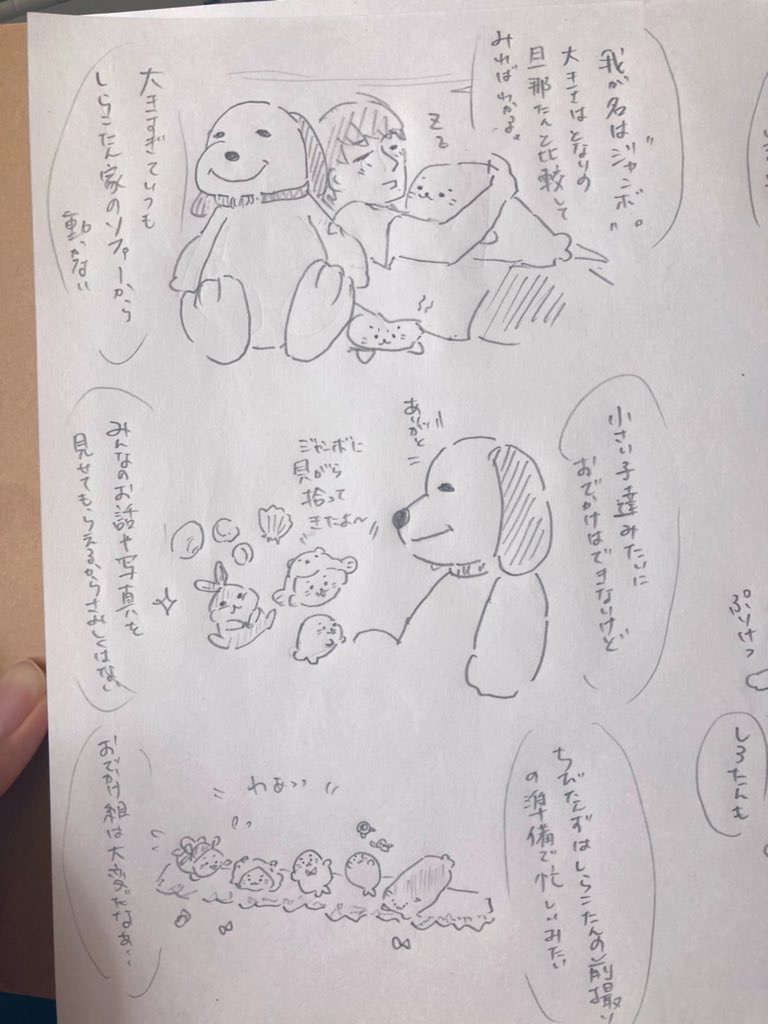 我が名は"ジャンボ"。
大きさはとなりの
旦那たんと比較して
みればわかる。
zz
大きすぎていつも
しらこたん家のソファーから
動かない
小さい子達みたいに
おでかけはできないけど
ありがと
ジャンボに
貝がら
拾って
きたよ〜
みんなのお話や写真を
見せてもらえるからさみしくはない
ちびたんずはしらこたんの前撮り
の準備で忙しいみたい
わぁっっ
おでかけ組は大変だなぁ、
ぷりけつ
しろたんも